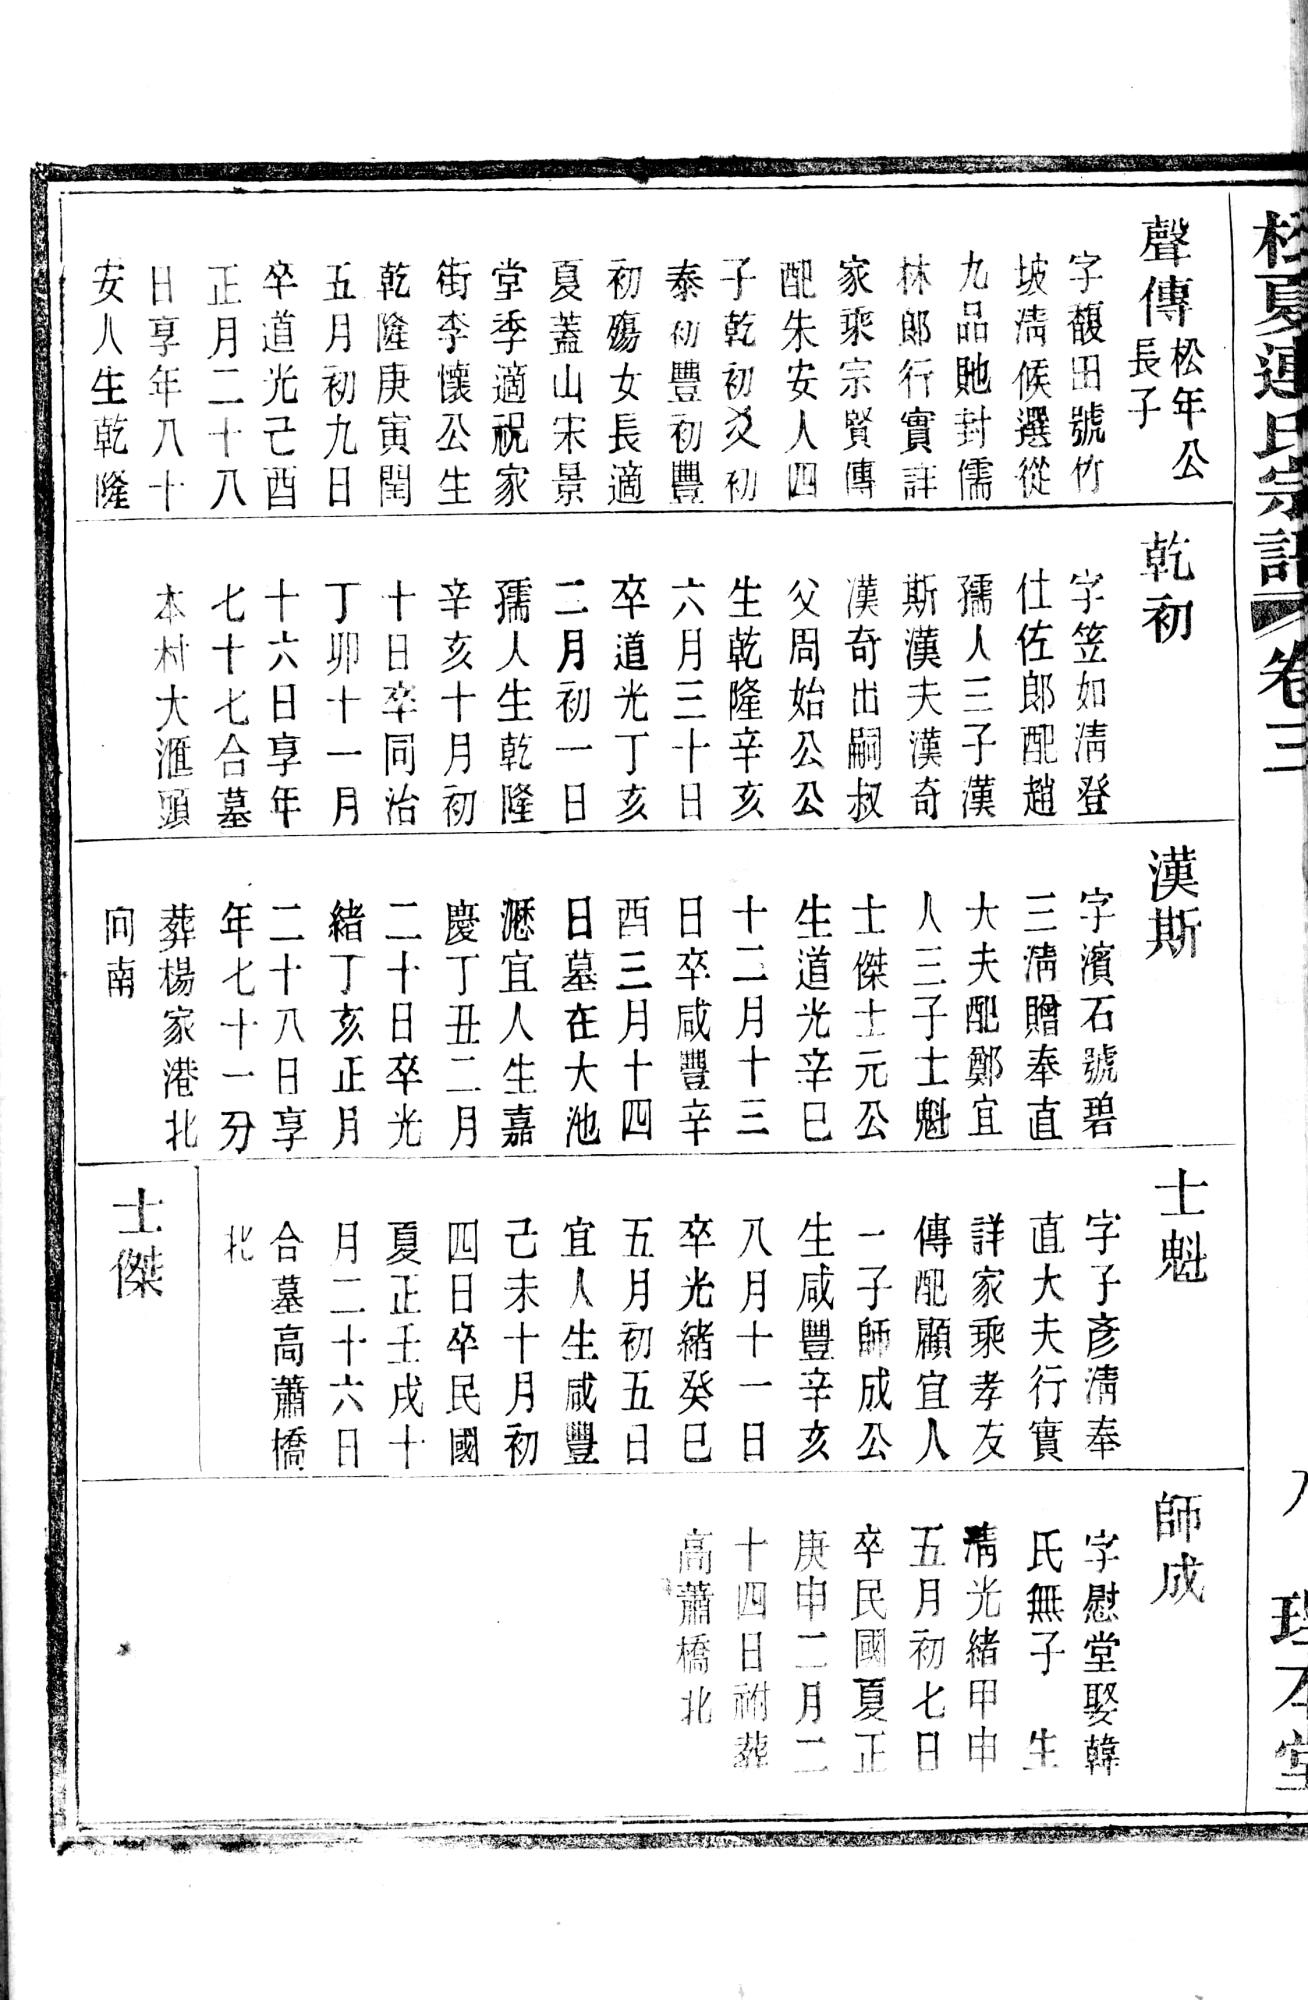 夏連氏宗譜 卷三
理本堂
聲傳 松年公
長子
字馥田號竹
坡清候選從
九品貤封儒
林郎行實詳
家乘宗賢傳
配朱安人四
子乾初爻初
泰初豐初豐
初殤女長適
夏蓋山宋景
堂季適祝家
街李懷公生
乾隆庚寅閏
五月初九日
卒道光己酉
正月二十八
日享年八十
安人生乾隆
乾初
字笠如清登
仕佐郎配趙
孺人三子漢
斯漢夫漢奇
漢奇出嗣叔
父周始公公
生乾隆辛亥
六月三十日
卒道光丁亥
二月初一日
孺人生乾隆
辛亥十月初
十日卒同治
丁卯十一月
十六日享年
七十七合墓
本村大滙頭
漢斯
字濱石號碧
三清贈奉直
大夫配鄭宜
人三子士魁
士傑士元公
生道光辛巳
十二月十三
日卒咸豐辛
酉三月十四
日墓在大池
瀝宜人生嘉
慶丁丑二月
二十日卒光
緒丁亥正月
二十八日享
年七十一分
葬楊家港北
向南
士魁
字子彥清奉
直大夫行實
詳家乘孝友
傳配顧宜人
一子師成公
生咸豐辛亥
八月十一日
卒光緒癸巳
五月初五日
宜人生咸豐
己未十月初
四日卒民國
夏正壬戌十
月二十六日
合墓高蕭橋
北
士傑
師成
字慰堂娶韓
氏無子 生
清光緒甲申
五月初七日
卒民國夏正
庚申二月二
十四日祔葬
高蕭橋北